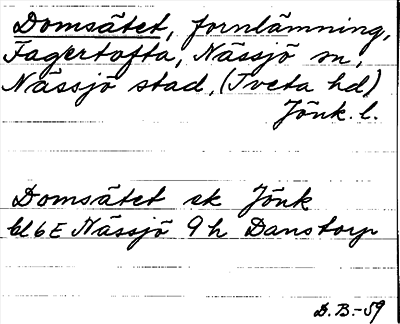 Domsätet, fornlämning,
Fagertofta, Nässjö sn,
Nässjö stad, (Tveta hd)
Jönk. l.
Domsätet ek Jönk
bl 6E Nässjö 9h Danstorp
D.B.-59